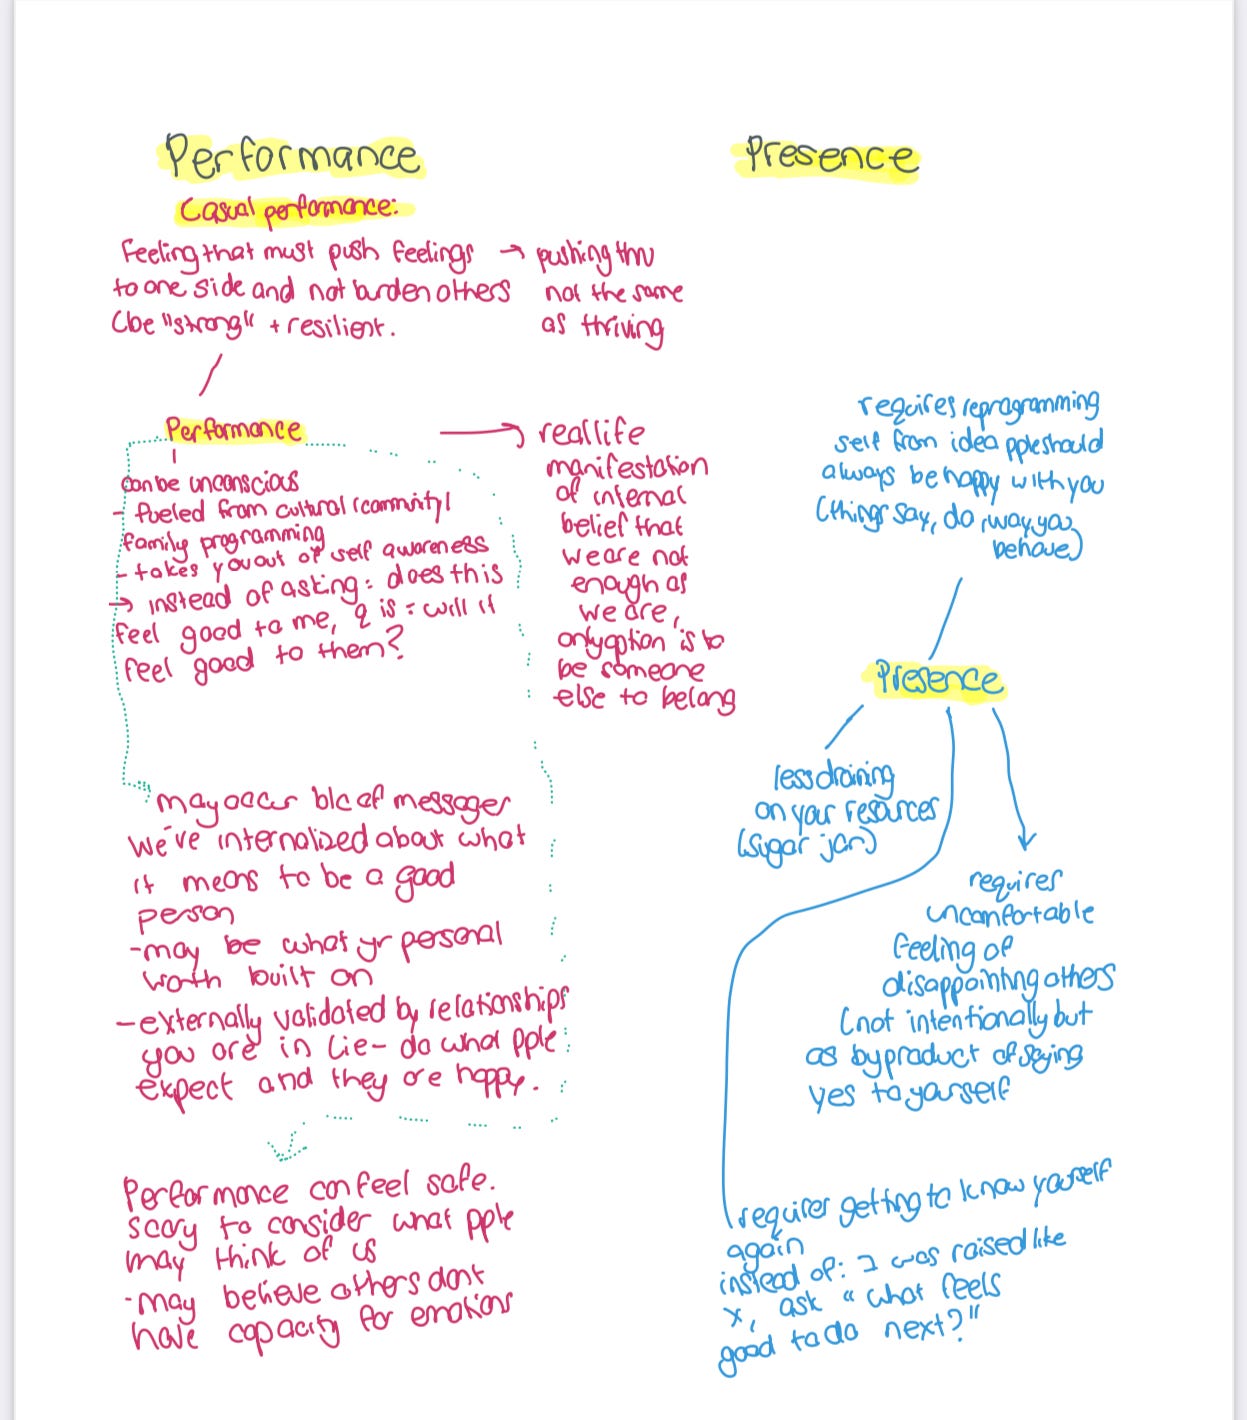 Performance
Casual performance:
Feeling that must push feelings → pushing thru
to one side and not burden others not the same
(be "strong" + resilient. as thriving
Performance
can be unconscious
- fueled from cultural/community/
family programming
- takes you out of self awareness
→ instead of asking: does this
feel good to me, q is: will it
feel good to them?
→ real life
manifestation
of internal
belief that
we are not
enough as
we are,
only option is to
be someone
else to belong
may occur b/c of messages
we've internalized about what
it means to be a good
person
- may be what yr personal
worth built on
- externally validated by relationships
you are in (ie - do what pple
expect and they are happy.
Performance can feel safe.
scary to consider what pple
may think of us
- may believe others dont
have capacity for emotions
Presence
requires reprogramming
self from idea pple should
always be happy with you
(things say, do, way you
behave)
Presence
less draining
on your resources
(sugar jar)
requires
uncomfortable
feeling of
disappointing others
(not intentionally but
as byproduct of saying
yes to yourself
requires getting to know yourself
again
instead of: I was raised like
x, ask "what feels
good to do next?"